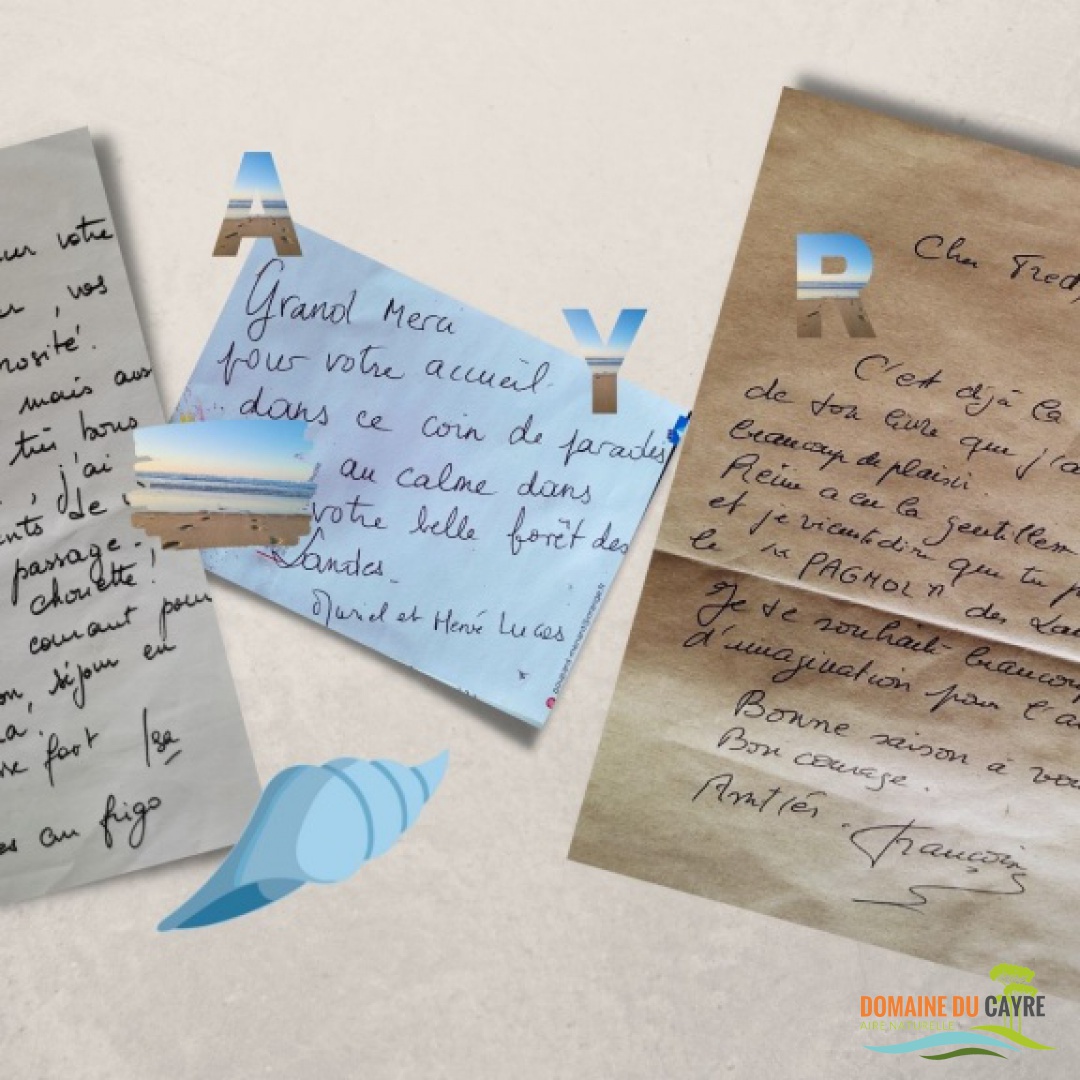 votre
, vos
mais aus
très bons
, j'ai
de
passage -
chouette !
courant pour
, séjour en
fort Isa
au frigo
A
Grand Merci
pour votre accueil
dans ce coin de paradis
au calme dans
votre belle forêt des
Landes.
Muriel et Hervé Lucas
Y
R
Cher Fred,
C'est déjà la
de ton livre que j'ai
beaucoup de plaisir.
Reine a eu la gentilless
et je viens te dire que tu
le "PAGNOL" des Lan
Je te souhaite beaucoup
d'imagination pour l'a
Bonne saison à vou
Bon courage.
Amitiés.
François
DOMAINE DU CAYRE